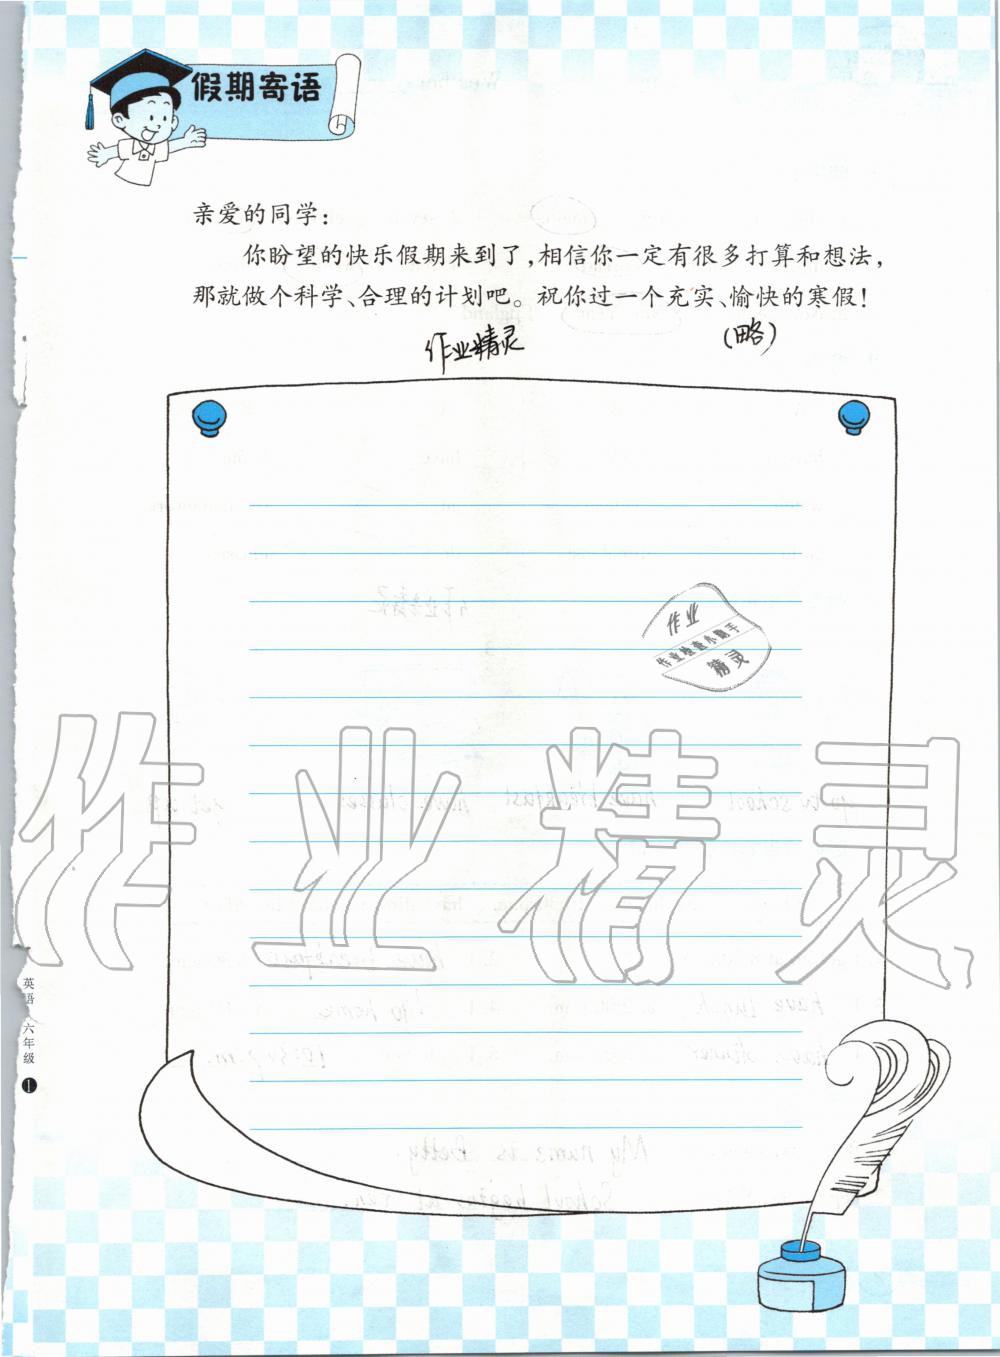 假期寄语
亲爱的同学：
你盼望的快乐假期来到了，相信你一定有很多打算和想法，
那就做个科学、合理的计划吧。祝你过一个充实、愉快的寒假！
作业精灵
(略)
作业
作业检查小助手
精灵
作业精灵
英语
六年级
1